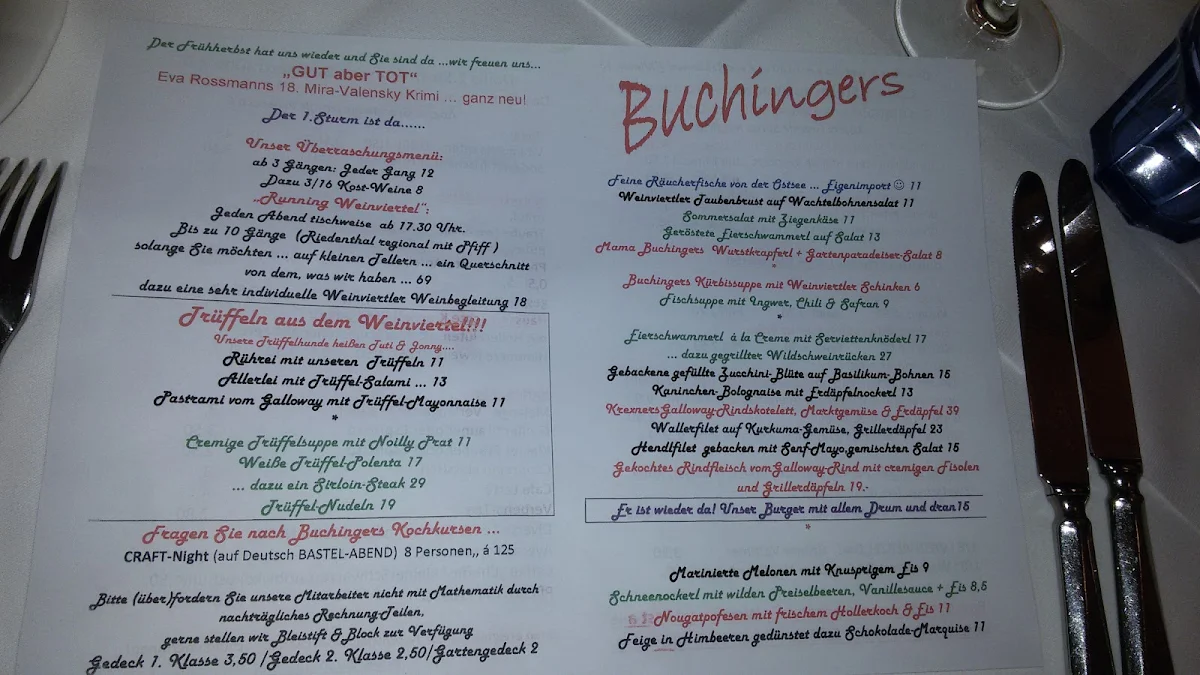 Der Frühherbst hat uns wieder und Sie sind da ...wir freuen uns...
„GUT aber TOT“
Eva Rossmanns 18. Mira-Valensky Krimi ... ganz neu!
Der 1.Sturm ist da......
Unser Überraschungsmenü:
ab 3 Gängen: Jeder Gang 12
Dazu 3/16 Kost-Weine 8
„Running Weinviertel“:
Jeden Abend tischweise ab 17.30 Uhr.
Bis zu 10 Gänge (Riedenthal regional mit Pfiff )
solange Sie möchten ... auf kleinen Tellern ... ein Querschnitt
von dem, was wir haben ... 69
dazu eine sehr individuelle Weinviertler Weinbegleitung 18
Trüffeln aus dem Weinviertel!!!
Unsere Trüffelhunde heißen Tuti & Jonny....
Rührei mit unseren Trüffeln 11
Allerlei mit Trüffel-Salami ... 13
Pastrami vom Galloway mit Trüffel-Mayonnaise 11
*
Cremige Trüffelsuppe mit Noilly Prat 11
Weiße Trüffel-Polenta 17
... dazu ein Sirloin-Steak 29
Trüffel-Nudeln 19
Fragen Sie nach Buchingers Kochkursen ...
CRAFT-Night (auf Deutsch BASTEL-ABEND) 8 Personen,, á 125
Bitte (über)fordern Sie unsere Mitarbeiter nicht mit Mathematik durch
nachträgliches Rechnung-Teilen,
gerne stellen wir Bleistift & Block zur Verfügung
Gedeck 1. Klasse 3,50 /Gedeck 2. Klasse 2,50/Gartengedeck 2
Buchingers
Feine Räucherfische von der Ostsee ... Eigenimport ☺ 11
Weinviertler Taubenbrust auf Wachtelbohnensalat 11
Sommersalat mit Ziegenkäse 11
Geröstete Eierschwammerl auf Salat 13
Mama Buchingers Wurstkrapferl + Gartenparadeiser-Salat 8
*
Buchingers Kürbissuppe mit Weinviertler Schinken 6
Fischsuppe mit Ingwer, Chili & Safran 9
*
Eierschwammerl á la Creme mit Serviettenknöderl 17
... dazu gegrillter Wildschweinrücken 27
Gebackene gefüllte Zucchini-Blüte auf Basilikum-Bohnen 15
Kaninchen-Bolognaise mit Erdäpfelnockerl 13
KrexnersGalloway-Rindskotelett, Marktgemüse & Erdäpfel 39
Wallerfilet auf Kurkuma-Gemüse, Grillerdäpfel 23
Hendlfilet gebacken mit Senf-Mayo,gemischten Salat 15
Gekochtes Rindfleisch vomGalloway-Rind mit cremigen Fisolen
und Grillerdäpfeln 19.-
Er ist wieder da! Unser Burger mit allem Drum und dran15
*
Marinierte Melonen mit Knusprigem Eis 9
Schneenockerl mit wilden Preiselbeeren, Vanillesauce + Eis 8,5
Nougatpofesen mit frischem Hollerkoch & Eis 11
Feige in Himbeeren gedünstet dazu Schokolade-Marquise 11